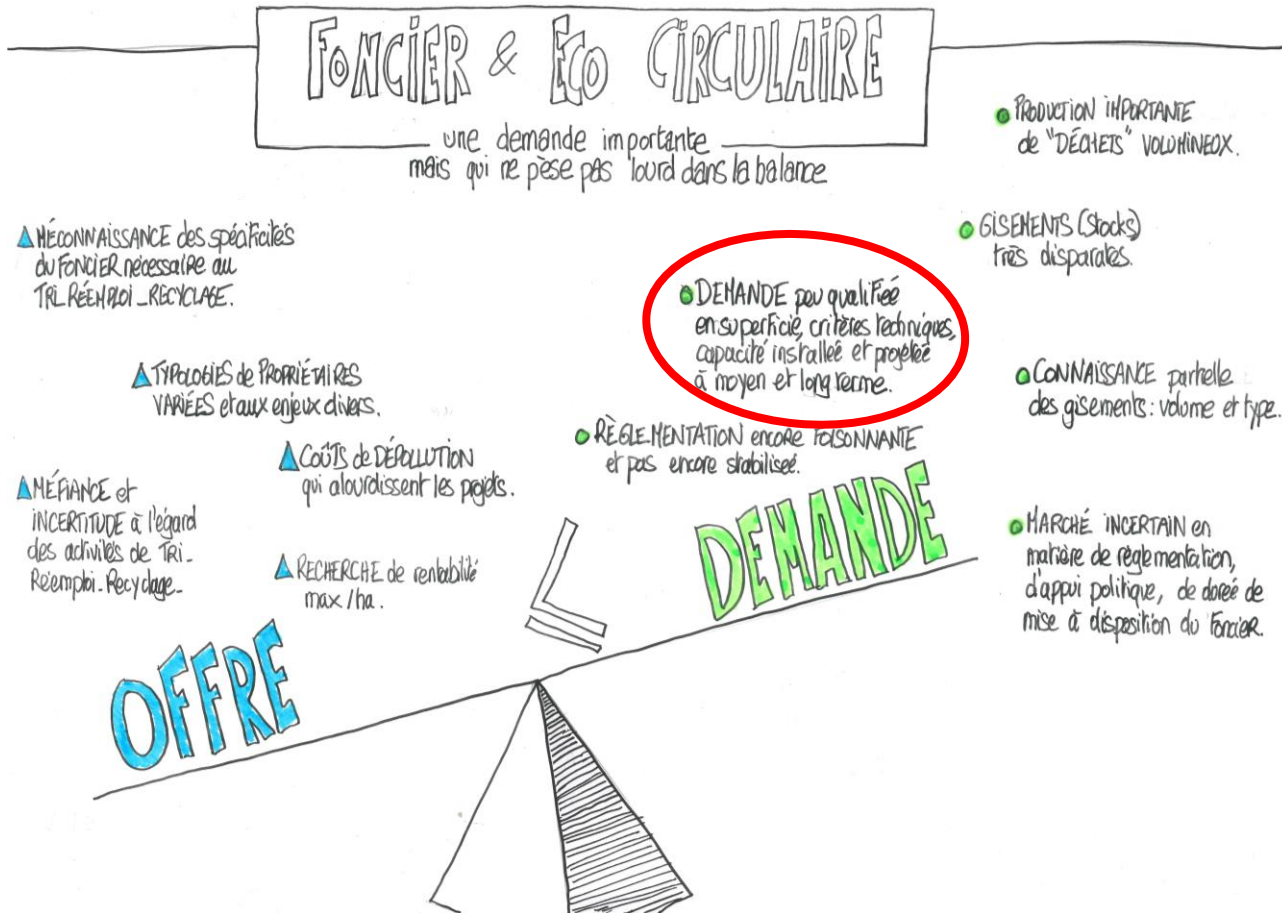 FONCIER & ECO CIRCULAIRE
une demande importante
mais qui ne pèse pas lourd dans la balance
▲ MÉCONNAISSANCE des spécificités
du FONCIER nécessaire au
TRI_RÉEMPLOI_RECYCLAGE.
▲ TYPOLOGIES de PROPRIÉTAIRES
VARIÉES et aux enjeux divers.
▲ COÛTS de DÉPOLLUTION
qui alourdissent les projets.
▲ MÉFIANCE et
INCERTITUDE à l'égard
des activités de TRI-
Réemploi-Recyclage-
▲ RECHERCHE de rentabilité
max/ha.
OFFRE
● PRODUCTION IMPORTANTE
de "DÉCHETS" VOLUMINEUX.
● GISEMENTS (Stocks)
très disparates.
● DEMANDE peu qualifiée
en superficie, critères techniques,
capacité installée et projetée
à moyen et long terme.
● CONNAISSANCE partielle
des gisements: volume et type.
● RÈGLEMENTATION encore FOISONNANTE
et pas encore stabilisée.
● MARCHÉ INCERTAIN en
matière de règlementation,
d'appui politique, de durée de
mise à disposition du Foncier.
DEMANDE